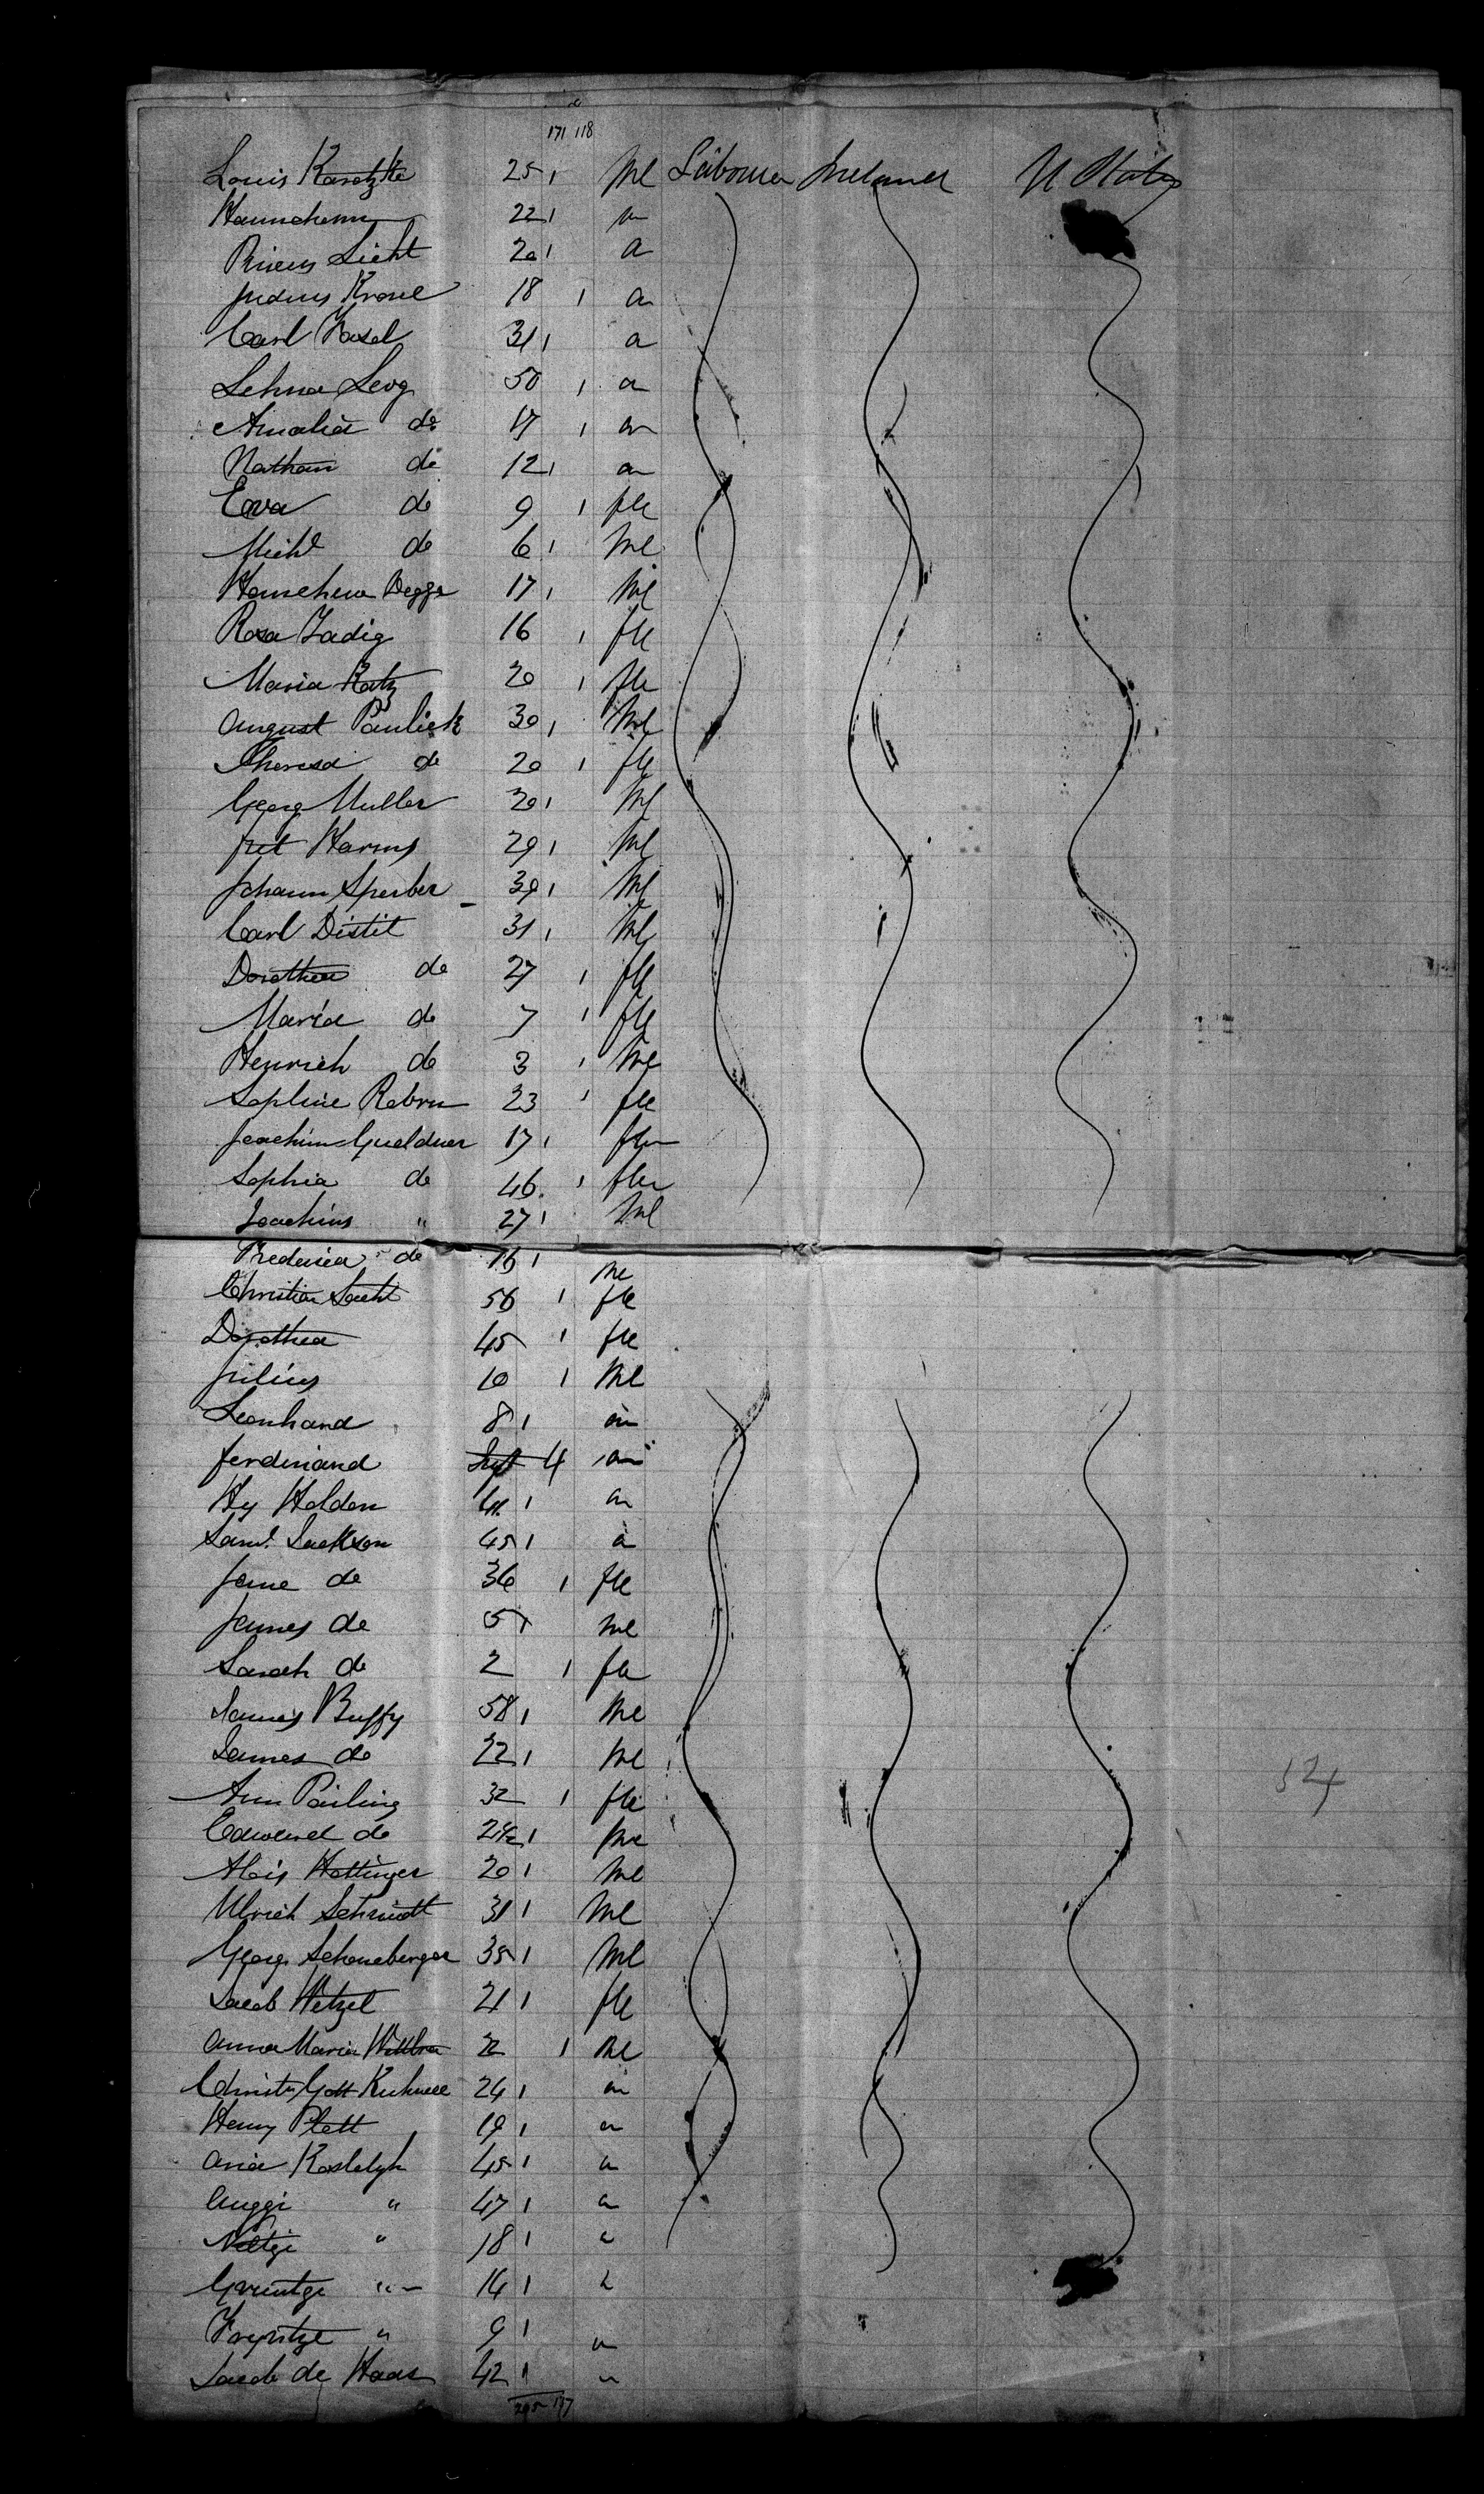 171 118
Louis Karetzke 25 1 Ml Labourer Ireland U States
Hannchenn 22 1 "
Licht 20 1 "
Krosel 18 1 "
Carl Kasel 31 1 "
Lehna Levy 50 1 "
Amalia do 17 1 "
Nathan do 12 1 "
Eva do 9 1 fle
Michl do 6 1 Ml
Hanchena 17 1 Ml
Rosa Zadig 16 1 fle
Maria Katz 20 1 fle
August Paulick 30 1 Ml
Theresa do 20 1 fle
Georg Muller 30 1 Ml
Harms 29 1 Ml
Johann Sperber 39 1 Ml
Carl Distit 31 1 Ml
Dorothea do 27 1 fle
Maria do 7 1 fle
Henrich do 3 1 Ml
Sophie 23 1 fle
Joachim Gueldner 17 1 fle
Sophia do 46 1 fle
Joachim " 27 1 Ml
Frederica do 16 1
Christian 56 1 fle
Dorothea 45 1 fle
Julius 10 1 Ml
Leonhard 8 1 "
Ferdinand 4 "
Hy Holden 41 1 "
Saml. Jackson 45 1 "
Jane do 36 1 fle
James do 5 1 Ml
Sarah do 2 1 fle
James Buffy 58 1 Ml
James do 22 1 Ml
Ann Pailing 32 1 fle
Edward do 1 Ml
Alois Hottinger 20 1 Ml
Ulrich Schmidt 31 1 Ml
Georg Schoneberger 35 1 Ml
Jacob Wetzel 21 1 fle
Anna Maria 22 1 Ml
Gott 24 1 "
Henry Plett 19 1 "
Aria 45 1 "
Auggi " 47 1 "
Neltgi " 18 1 "
Gruntge " 16 1 "
" 9 1 "
Jacob de Haas 42 1 "
524